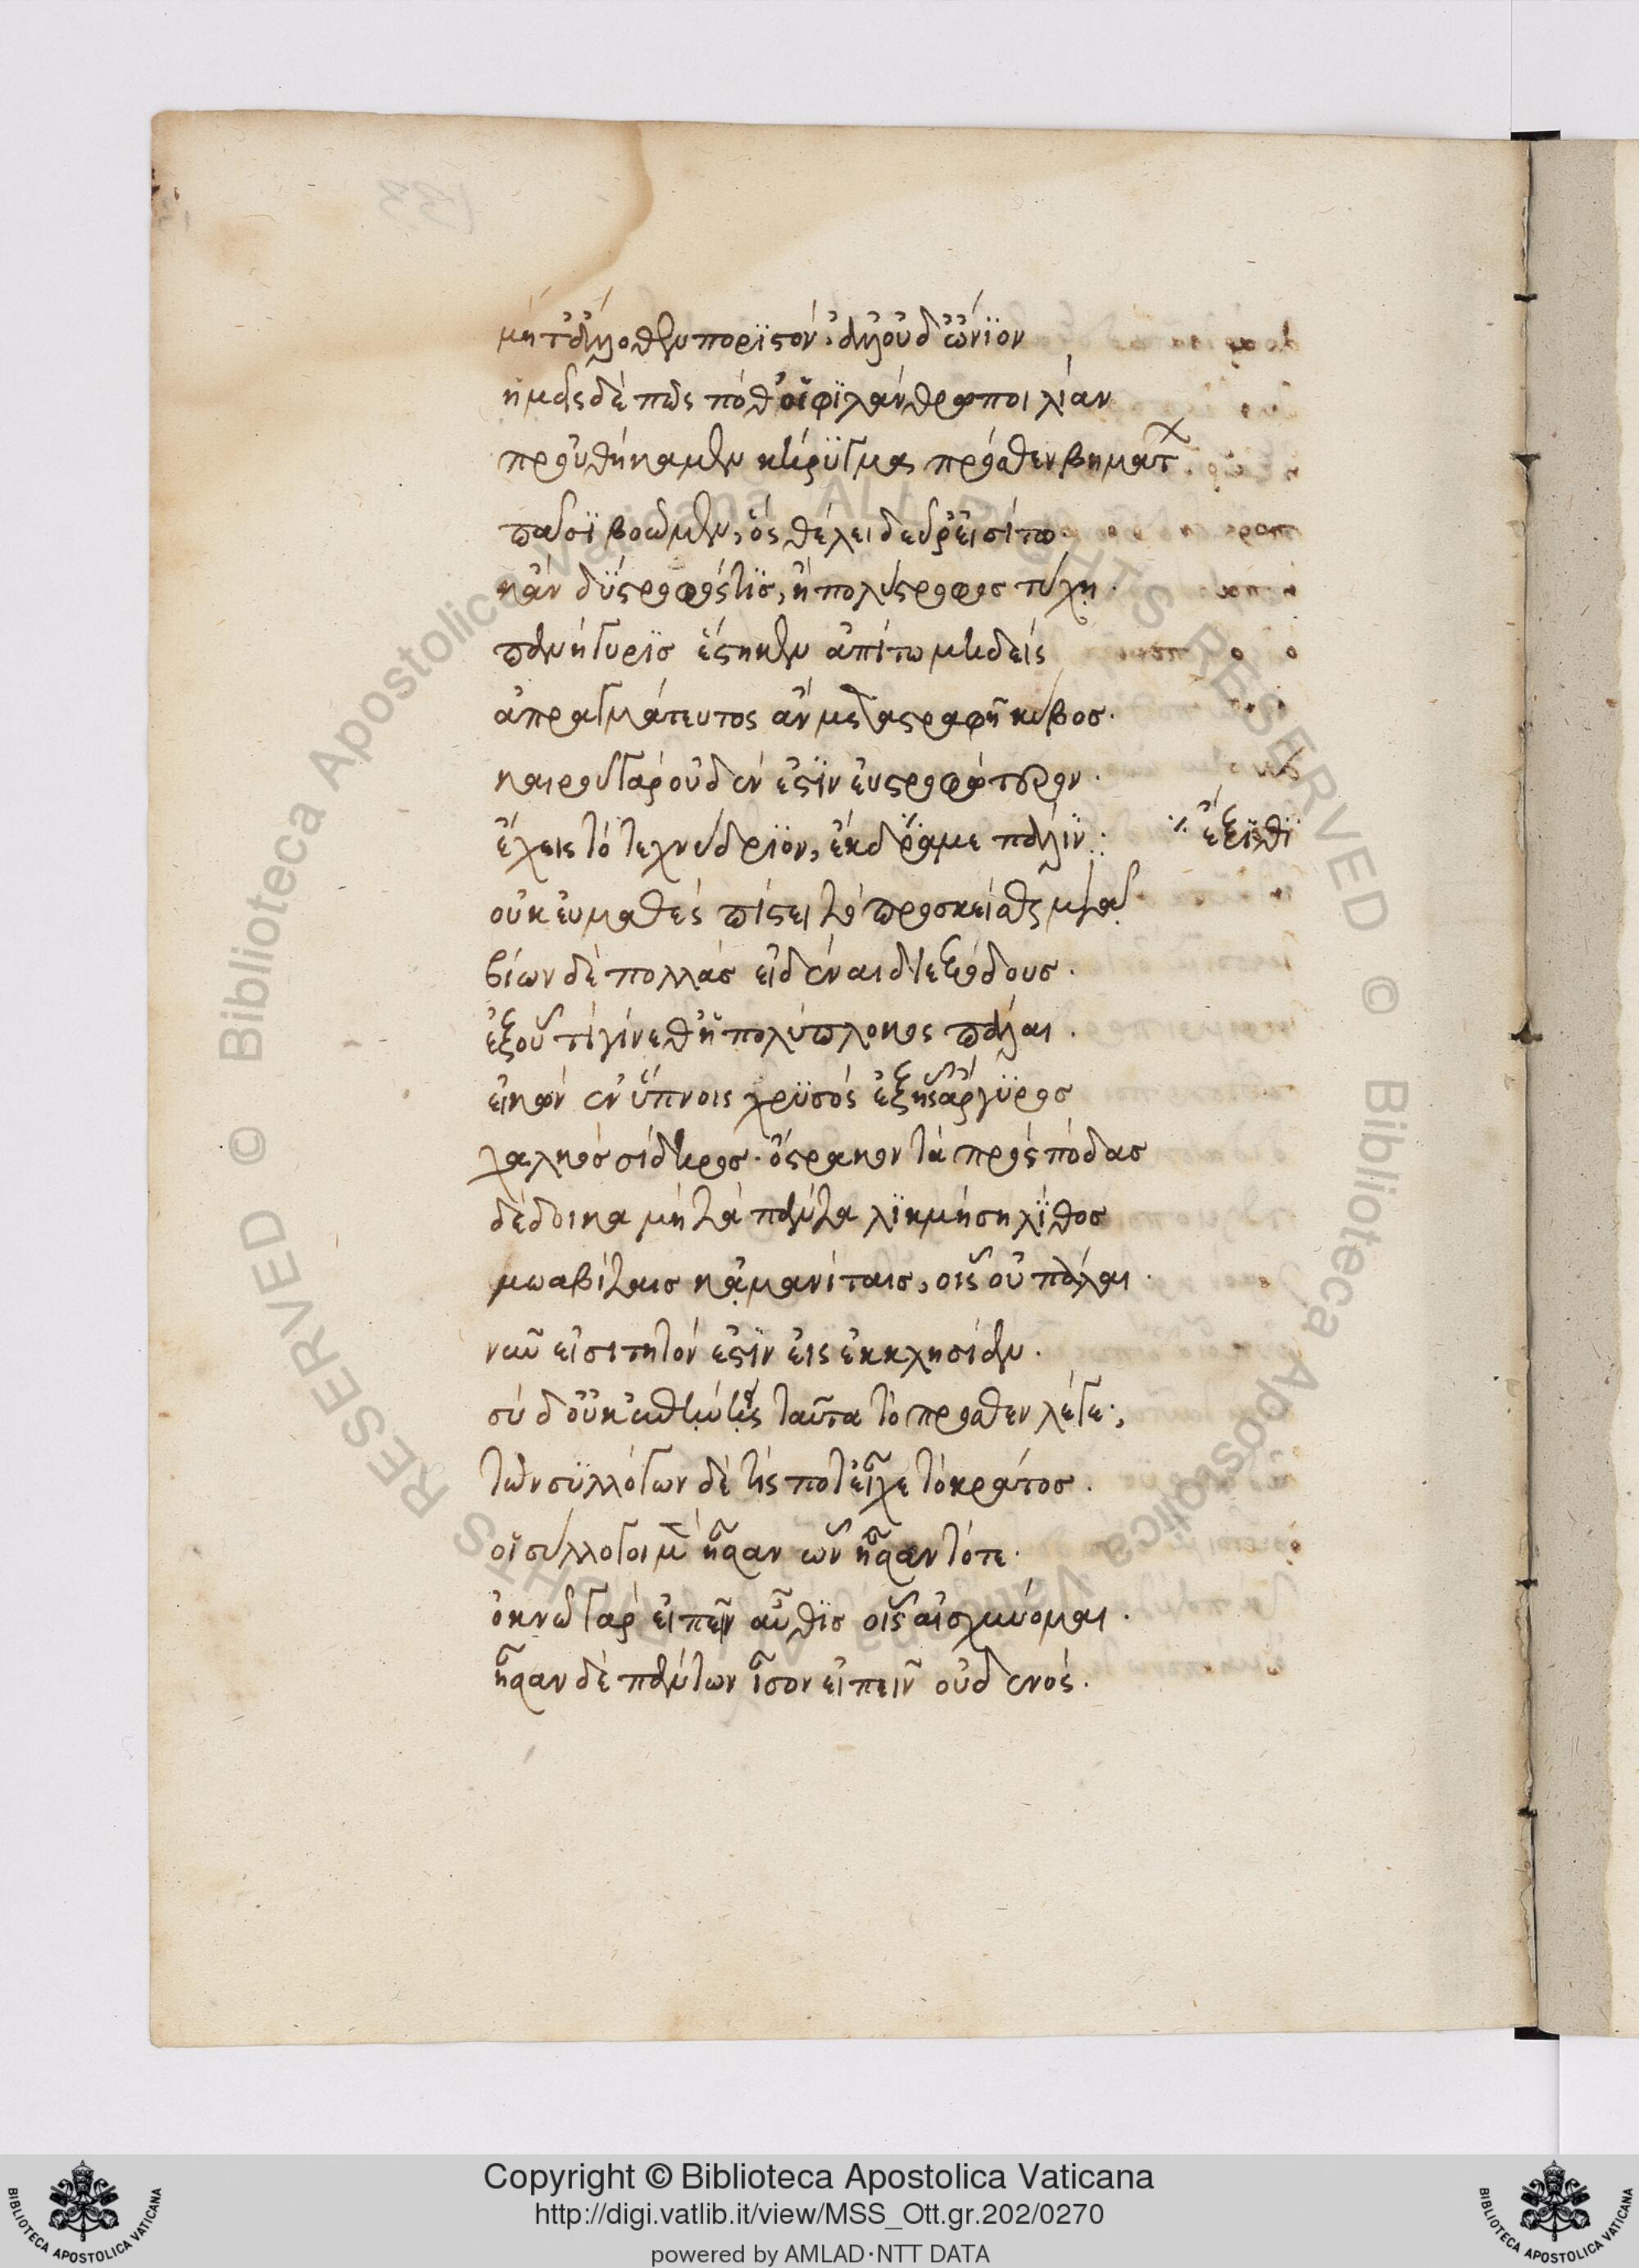 μήτ' ἄλλοθεν ποριστόν· ἀλλ' οὐδ' ὤνιον
ἡμεῖς δὲ πῶς πόθ' οἱ φιλάνθρωποι λίαν
προυθήκαμεν κήρυγμα πρόσθεν βημάτ
πᾶσι βοῶμεν, ὃς θέλει δεῦρ' εἰσίτω
κἂν δίστροφός τις, ἢ πολύστροφος τύχῃ·
πανήγυρις ἕστηκεν ἀπίτω μηδείς
ἀπραγμάτευτος ἂν μεταστραφῇ κύβος·
καιροῦ γὰρ οὐδέν ἐστιν εὐστροφώτερον·
ἔχεις τὸ τεχνύδριον, ἔκδραμε πάλιν· ⁒ ἔξιθι
οὐκ εὐμαθὲς πίστει τὸ προσκεῖσθαι μιᾷ
βίων δὲ πολλὰς εἰδέναι διεξόδους·
ἐξ οὗ τί γίνεθ' ἡ πολύπλοκος πάλαι·
εἰκὼν ἐν ὕπνοις χρυσὸς ἐξῆς ἄργυρος
χαλκὸς σίδηρος· ὄστρακον τὰ πρὸς πόδας
δέδοικα μὴ τὰ πάντα λικμήσῃ λίθος
μωαβίταις κἀμανίταις, οἷς οὐ πάλαι·
νῦν εἰσιτητόν ἐστιν εἰς ἐκκλησίαν·
σὺ δ' οὐκ ταῦτα τὸ πρόσθεν λέγε·,
τῶν συλλόγων δὲ τίς ποτ' εἶχε τὸ κράτος·
οἱ σύλλογοι μὲν ἦσαν ὧν ἦσαν τότε·
ὀκνῶ γὰρ εἰπεῖν αὖθις οἷς αἰσχύνομαι·
ἦσαν δὲ πάντων ἶσον εἰπεῖν οὐδενός·
Copyright © Biblioteca Apostolica Vaticana
http://digi.vatlib.it/view/MSS_Ott.gr.202/0270
powered by AMLAD·NTT DATA
BIBLIOTECA APOSTOLICA VATICANA
BIBLIOTECA APOSTOLICA VATICANA
© Biblioteca Apostolica Vaticana ALL RIGHTS RESERVED © Biblioteca Apostolica Vaticana ALL RIGHTS RESERVED